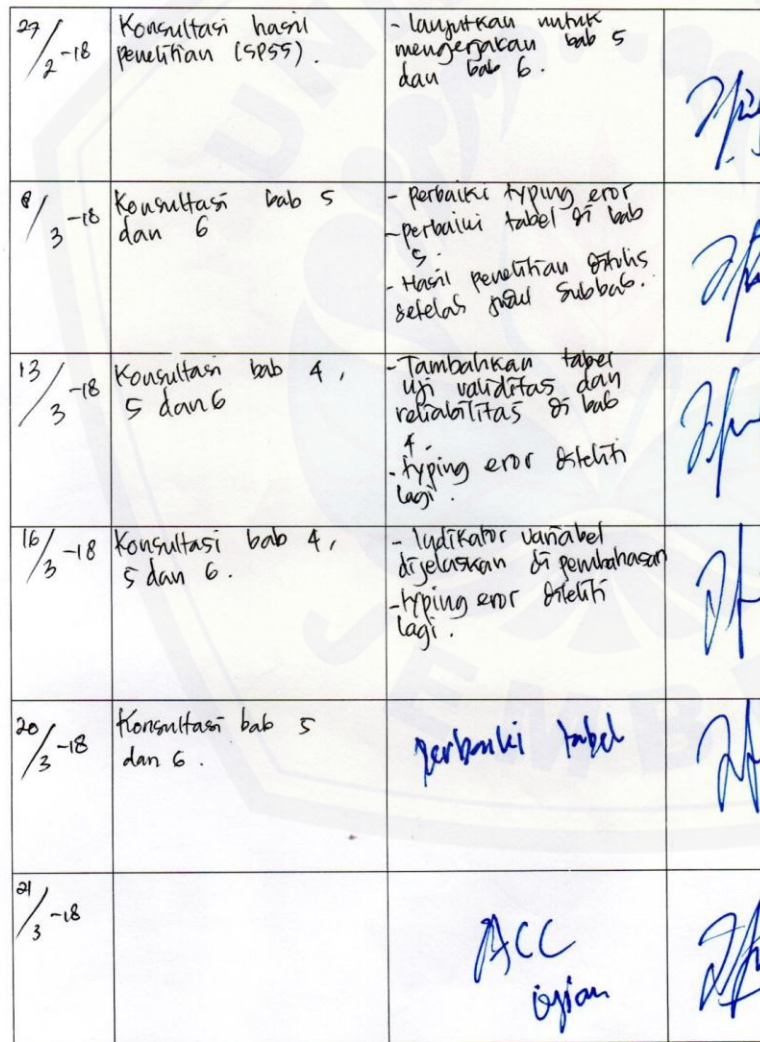 27/2-18
Konsultasi hasil
penelitian (SPSS).
- lanjutkan untuk
mengerjakan bab 5
dan bab 6.
8/3-18
Konsultasi bab 5
dan 6
- perbaiki typing eror
- perbaiki tabel di bab
5.
- Hasil penelitian ditulis
setelas judul subbab.
13/3-18
Konsultasi bab 4,
5 dan 6
- Tambahkan tabel
uji validitas dan
reliabilitas di bab
4.
- typing eror diteliti
lagi.
16/3-18
Konsultasi bab 4,
5 dan 6.
- Indikator variabel
dijelaskan di pembahasan
- typing eror diteliti
lagi.
20/3-18
Konsultasi bab 5
dan 6.
perbaiki tabel
21/3-18
ACC
ujian
JEMBE